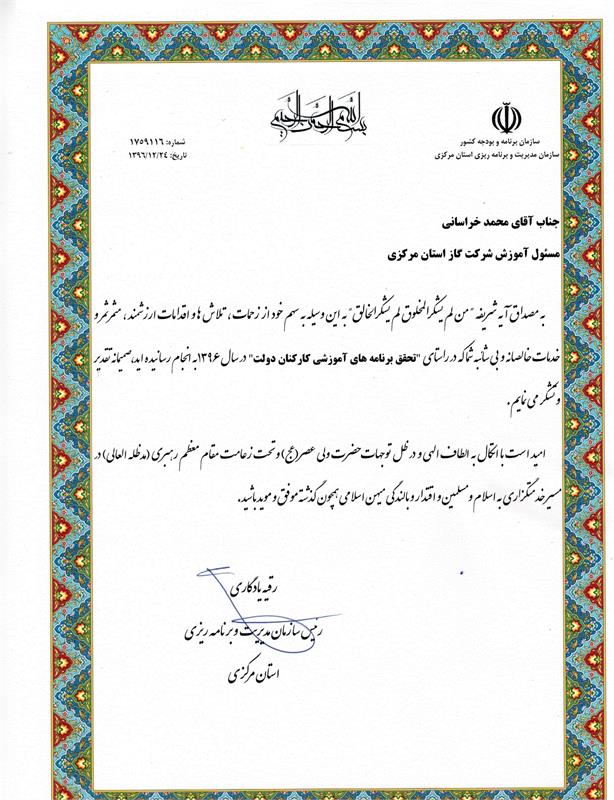 بسم الله الرحمن الرحیم
سازمان برنامه و بودجه کشور
سازمان مدیریت و برنامه ریزی استان مرکزی
شماره: ۱۷۵۹۱۱۶
تاریخ: ۱۳۹۶/۱۲/۲۴
جناب آقای محمد خراسانی
مسئول آموزش شرکت گاز استان مرکزی
به مصداق آیه شریفه "من لم یشکر المخلوق لم یشکر الخالق" به این وسیله به سهم خود از زحمات، تلاش ها و اقدامات ارزشمند، مثمرثمر و
خدمات خالصانه و بی شائبه شما که در راستای "تحقق برنامه های آموزشی کارکنان دولت" در سال ۱۳۹۶ به انجام رسانیده اید، صمیمانه تقدیر
و تشکر می نمایم.
امید است با اتکال به الطاف الهی و در ظل توجهات حضرت ولی عصر(عج) و تحت زعامت مقام معظم رهبری (مدظله العالی) در
مسیر خدمتگزاری به اسلام و مسلمین و اقتدار و بالندگی میهن اسلامی همچون گذشته موفق و موید باشید.
رقیه یادگاری
رئیس سازمان مدیریت و برنامه ریزی
استان مرکزی